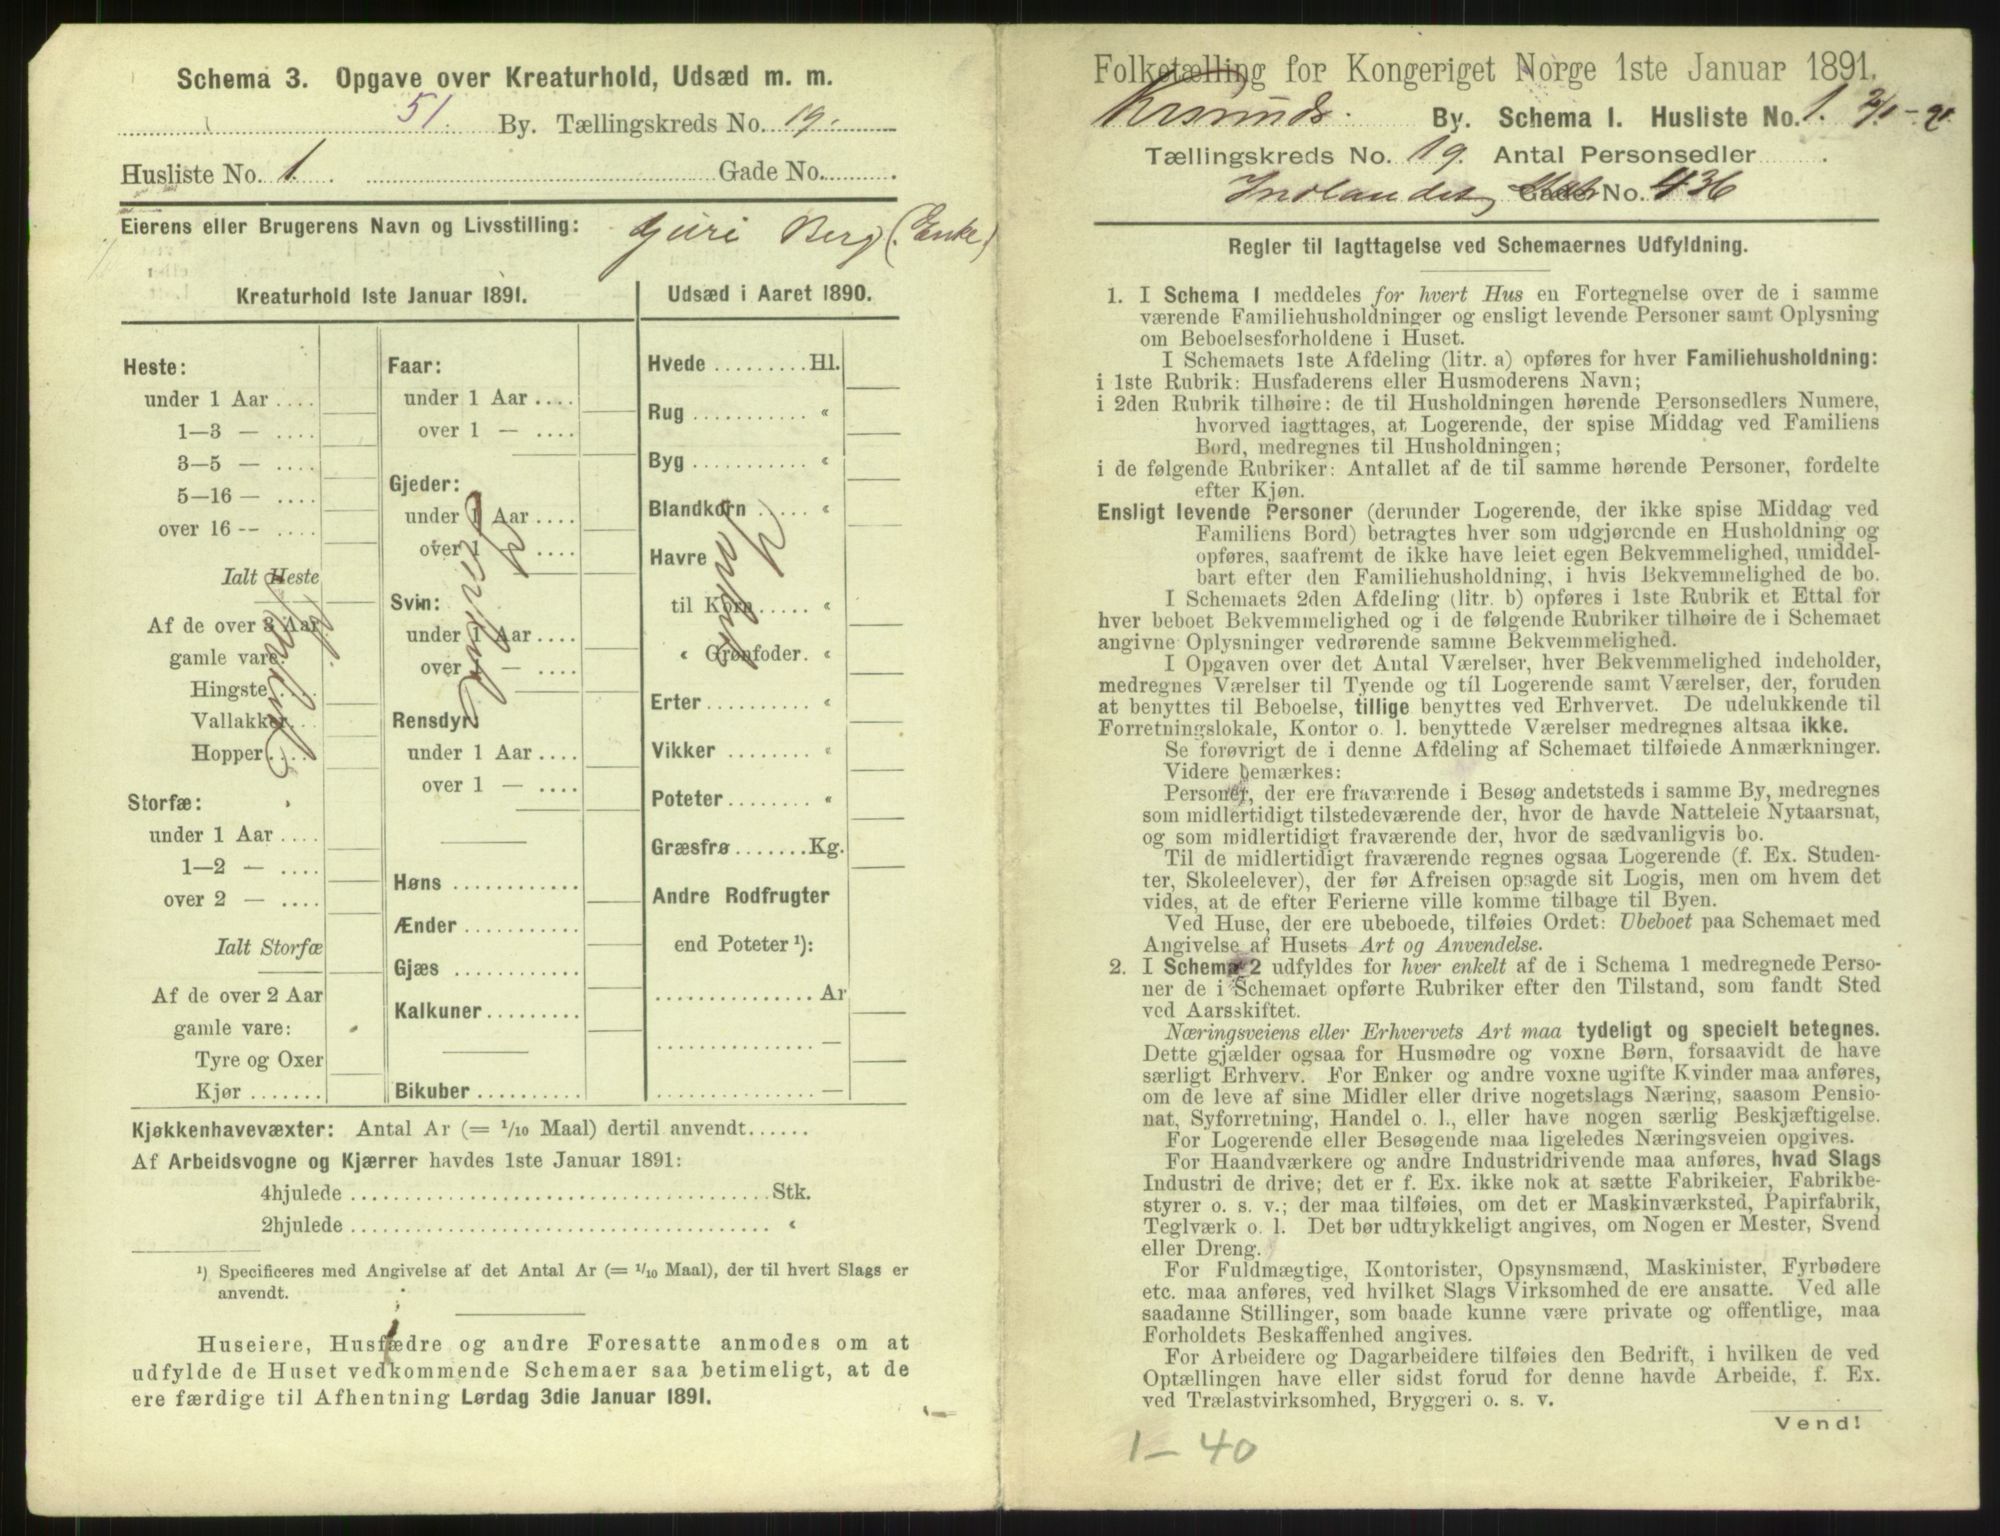 Schema 3. Opgave over Kreaturhold, Udsæd m. m.
51. By. Tællingskreds No. 19.
Husliste No. 1. Gade No.
Eierens eller Brugerens Navn og Livsstilling: Guri Berg (Enke)
Kreaturhold 1ste Januar 1891.
Heste:
under 1 Aar
1—3 —
3—5 —
5—16 —
over 16 —
Ialt Heste
Af de over 3 Aar
gamle vare:
Hingste
Vallakker
Hopper
Storfæ:
under 1 Aar
1—2 —
over 2 —
Ialt Storfæ
Af de over 2 Aar
gamle vare:
Tyre og Oxer
Kjør
Faar:
under 1 Aar
over 1 —
Gjeder:
under 1 Aar
over 1 —
Svin:
under 1 Aar
over 1 —
Rensdyr
under 1 Aar
over 1 —
Høns
Ænder
Gjæs
Kalkuner
Bikuber
Udsæd i Aaret 1890.
Hvede Hl.
Rug "
Byg "
Blandkorn "
Havre
til Korn "
" Grønfoder "
Erter "
Vikker "
Poteter "
Græsfrø Kg.
Andre Rodfrugter
end Poteter ¹):
Ar
—
—
Kjøkkenhavevæxter: Antal Ar (= 1/10 Maal) dertil anvendt
Af Arbeidsvogne og Kjærrer havdes 1ste Januar 1891:
4hjulede Stk.
2hjulede "
¹) Specificeres med Angivelse af det Antal Ar (= 1/10 Maal), der til hvert Slags er
anvendt.
Huseiere, Husfædre og andre Foresatte anmodes om at
udfylde de Huset vedkommende Schemaer saa betimeligt, at de
ere færdige til Afhentning Lørdag 3die Januar 1891.
Folketælling for Kongeriget Norge 1ste Januar 1891.
Krsunds By. Schema I. Husliste No. 1.
Tællingskreds No. 19. Antal Personsedler
Indlandet, Gade No. 436
Regler til Iagttagelse ved Schemaernes Udfyldning.
1. I Schema 1 meddeles for hvert Hus en Fortegnelse over de i samme
værende Familiehusholdninger og ensligt levende Personer samt Oplysning
om Beboelsesforholdene i Huset.
I Schemaets 1ste Afdeling (litr. a) opføres for hver Familiehusholdning:
i 1ste Rubrik: Husfaderens eller Husmoderens Navn;
i 2den Rubrik tilhøire: de til Husholdningen hørende Personsedlers Numere,
hvorved iagttages, at Logerende, der spise Middag ved Familiens
Bord, medregnes til Husholdningen;
i de følgende Rubriker: Antallet af de til samme hørende Personer, fordelte
efter Kjøn.
Ensligt levende Personer (derunder Logerende, der ikke spise Middag ved
Familiens Bord) betragtes hver som udgjørende en Husholdning og
opføres, saafremt de ikke have leiet egen Bekvemmelighed, umiddel-
bart efter den Familiehusholdning, i hvis Bekvemmelighed de bo.
I Schemaets 2den Afdeling (litr. b) opføres i 1ste Rubrik et Ettal for
hver beboet Bekvemmelighed og i de følgende Rubriker tilhøire de i Schemaet
angivne Oplysninger vedrørende samme Bekvemmelighed.
I Opgaven over det Antal Værelser, hver Bekvemmelighed indeholder,
medregnes Værelser til Tyende og til Logerende samt Værelser, der, foruden
at benyttes til Beboelse, tillige benyttes ved Erhvervet. De udelukkende til
Forretningslokale, Kontor o. l. benyttede Værelser medregnes altsaa ikke.
Se forøvrigt de i denne Afdeling af Schemaet tilføiede Anmærkninger.
Videre bemærkes:
Personer, der ere fraværende i Besøg andetsteds i samme By, medregnes
som midlertidigt tilstedeværende der, hvor de havde Natteleie Nytaarsnat,
og som midlertidigt fraværende der, hvor de sædvanligvis bo.
Til de midlertidigt fraværende regnes ogsaa Logerende (f. Ex. Studen-
ter, Skoleelever), der før Afreisen opsagde sit Logis, men om hvem det
vides, at de efter Ferierne ville komme tilbage til Byen.
Ved Huse, der ere ubeboede, tilføies Ordet: Ubeboet paa Schemaet med
Angivelse af Husets Art og Anvendelse.
2. I Schema 2 udfyldes for hver enkelt af de i Schema 1 medregnede Perso-
ner de i Schemaet opførte Rubriker efter den Tilstand, som fandt Sted
ved Aarsskiftet.
Næringsveiens eller Erhvervets Art maa tydeligt og specielt betegnes.
Dette gjælder ogsaa for Husmødre og voxne Børn, forsaavidt de have
særligt Erhverv. For Enker og andre voxne ugifte Kvinder maa anføres,
om de leve af sine Midler eller drive nogetslags Næring, saasom Pensio-
nat, Syforretning, Handel o. l., eller have nogen særlig Beskjæftigelse.
For Logerende eller Besøgende maa ligeledes Næringsveien opgives.
For Haandværkere og andre Industridrivende maa anføres, hvad Slags
Industri de drive; det er f. Ex. ikke nok at sætte Fabrikeier, Fabrikbe-
styrer o. s. v.; der maa tilføies, om det er Maskinværksted, Papirfabrik,
Teglværk o. l. Det bør udtrykkeligt angives, om Nogen er Mester, Svend
eller Dreng.
For Fuldmægtige, Kontorister, Opsynsmænd, Maskinister, Fyrbødere
etc. maa anføres, ved hvilket Slags Virksomhed de ere ansatte. Ved alle
saadanne Stillinger, som baade kunne være private og offentlige, maa
Forholdets Beskaffenhed angives.
For Arbeidere og Dagarbeidere tilføies den Bedrift, i hvilken de ved
Optællingen have eller sidst forud for denne havde Arbeide, f. Ex.
ved Trælastvirksomhed, Bryggeri o. s. v.
Vend!
1—40